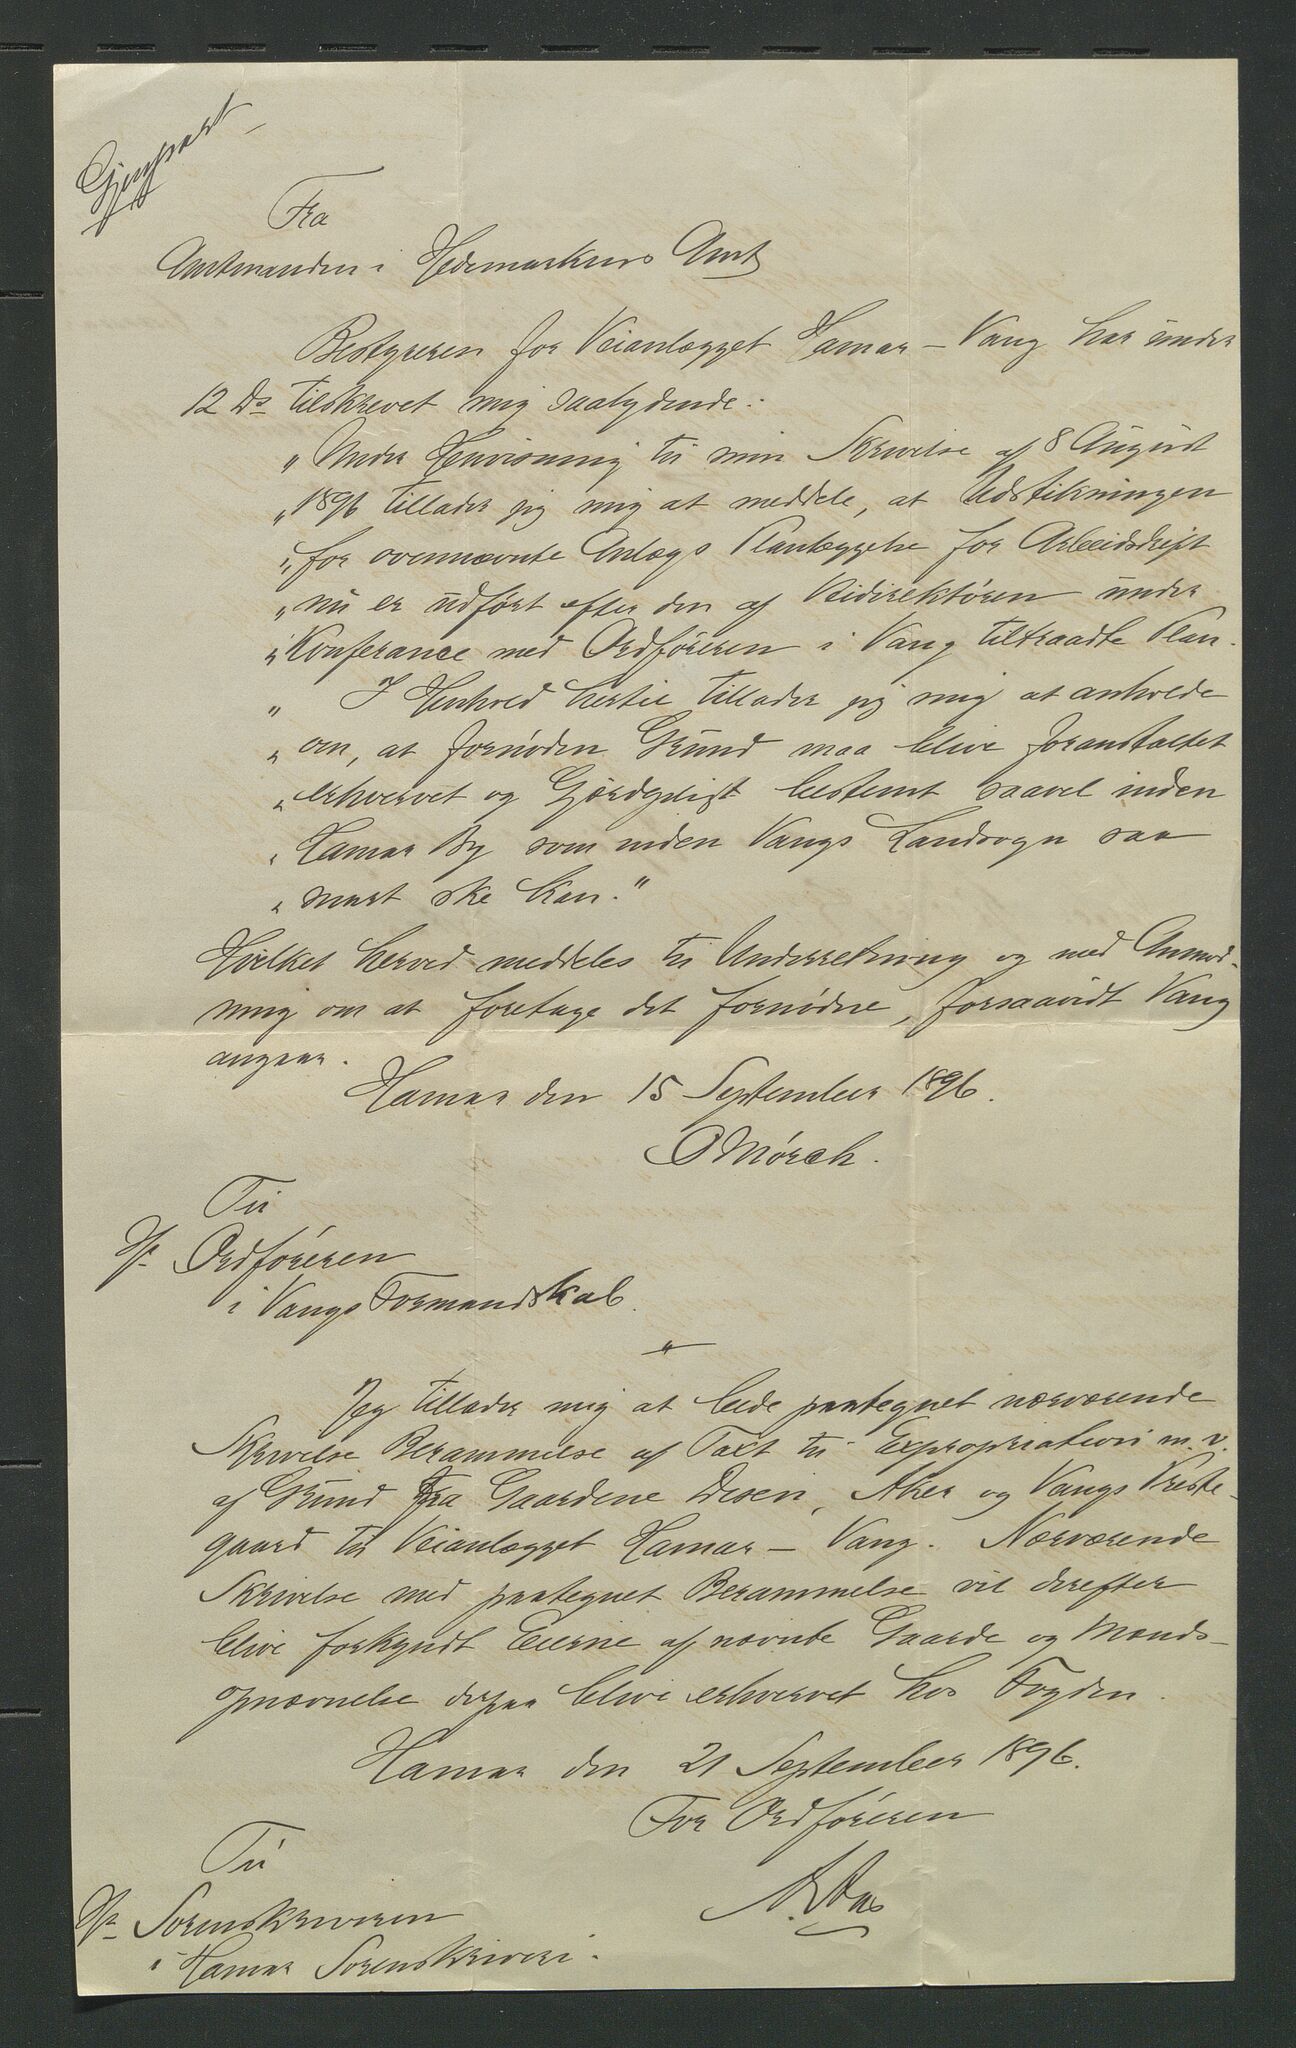 Gjenpart
Fra
Amtmanden i Hedemarkens Amt
Bestyreren for Veianlægget Hamar – Vang har under
12 Ds tilskrevet mig saalydende:
„Under Henvisning til min Skrivelse af 8 August
„1896 tillader jeg mig at meddele, at Udstikningen
„for ovennævnte Anlægs Planlæggelse for Arbeidsdrift
„nu er udført efter den af Veidirektøren under
„Konferance med Ordføreren i Vang tiltraadte Plan.
„ I Henhold hertil tillader jeg mig at anholde
„om, at fornøden Grund maa blive foranstaltet
„erhvervet og Gjerdepligt bestemt saavel inden
„Hamar By som inden Vangs Landsogn saa
„snart ske kan."
Hvilket herved meddeles til Underretning og med Anmod-
ning om at foretage det fornødne, forsaavidt Vang
angaar.
Hamar den 15 September 1896.
O Mørch.
Til
Hr. Ordføreren
i Vangs Formandskab.
"
Jeg tillader mig at bede paategnet nærværende
Skrivelse Berammelse af Taxt til Expropriation m. v.
af Grund fra Gaardene Disen, Aker og Vangs Præste-
gaard til Veianlægget Hamar – Vang. Nærværende
Skrivelse med paategnet Berammelse vil derefter
blive forkyndt Eierne af nævnte Gaarde og Mands-
opnævnelse derpaa blive erhvervet hos Fogden.
Hamar den 21 September 1896.
For Ordføreren
Til
Hr. Sorenskriveren
i Hamar Sorenskriveri.